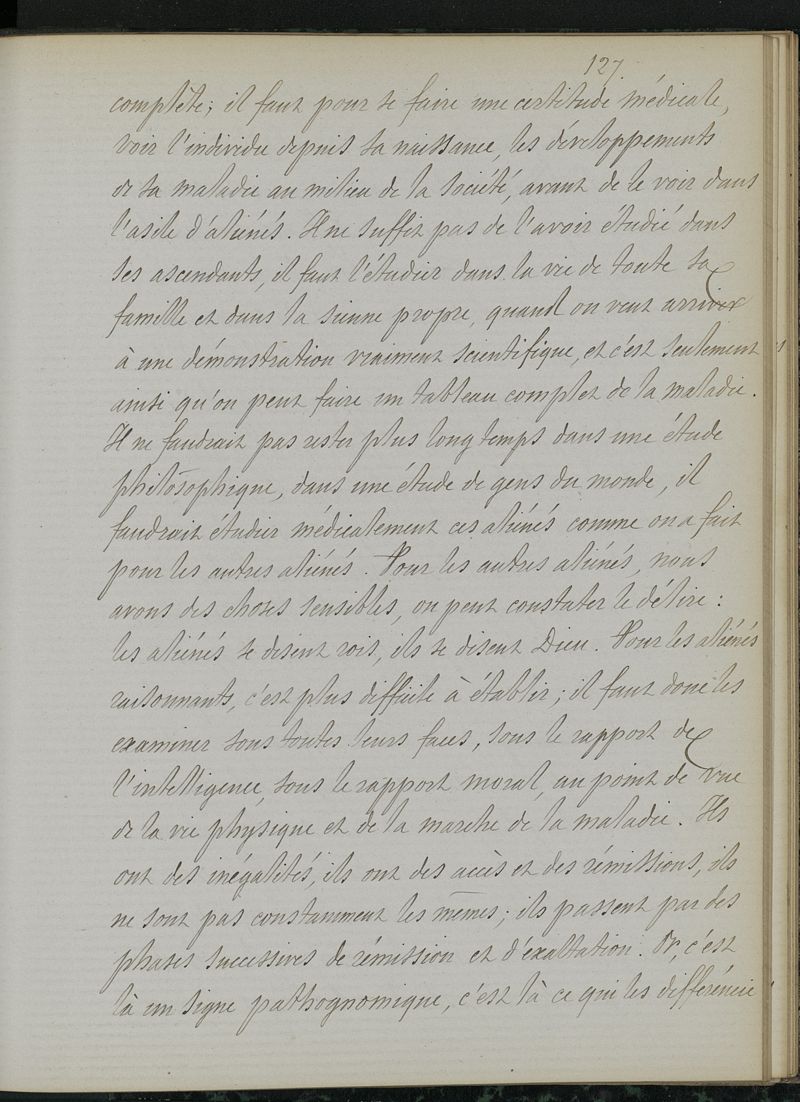 127.
complète; il faut pour se faire une certitude médicale,
voir l'individu depuis sa naissance, les développements
de sa maladie au milieu de la société, avant de le voir dans
l'asile d'aliénés. Il ne suffit pas de l'avoir étudié dans
ses ascendants, il faut l'étudier dans la vie de toute sa
famille et dans la sienne propre, quand on veut arriver
à une démonstration vraiment scientifique, et c'est seulement
ainsi qu'on peut faire un tableau complet de la maladie.
Il ne faudrait pas rester plus longtemps dans une étude
philosophique, dans une étude de gens du monde, il
faudrait étudier médicalement ces aliénés comme on a fait
pour les autres aliénés. Pour les autres aliénés, nous
avons des choses sensibles, on peut constater le délire:
les aliénés se disent rois, ils se disent Dieu. Pour les aliénés
raisonnants, c'est plus difficile à établir; il faut donc les
examiner sous toutes leurs faces, sous le rapport de
l'intelligence, sous le rapport moral, au point de vue
de la vie physique et de la marche de la maladie. Ils
ont des inégalités, ils ont des accès et des rémissions, ils
ne sont pas constamment les mêmes; ils passent par des
phases successives de rémission et d'exaltation. Or, c'est
là un signe pathognomique, c'est là ce qui les différencie